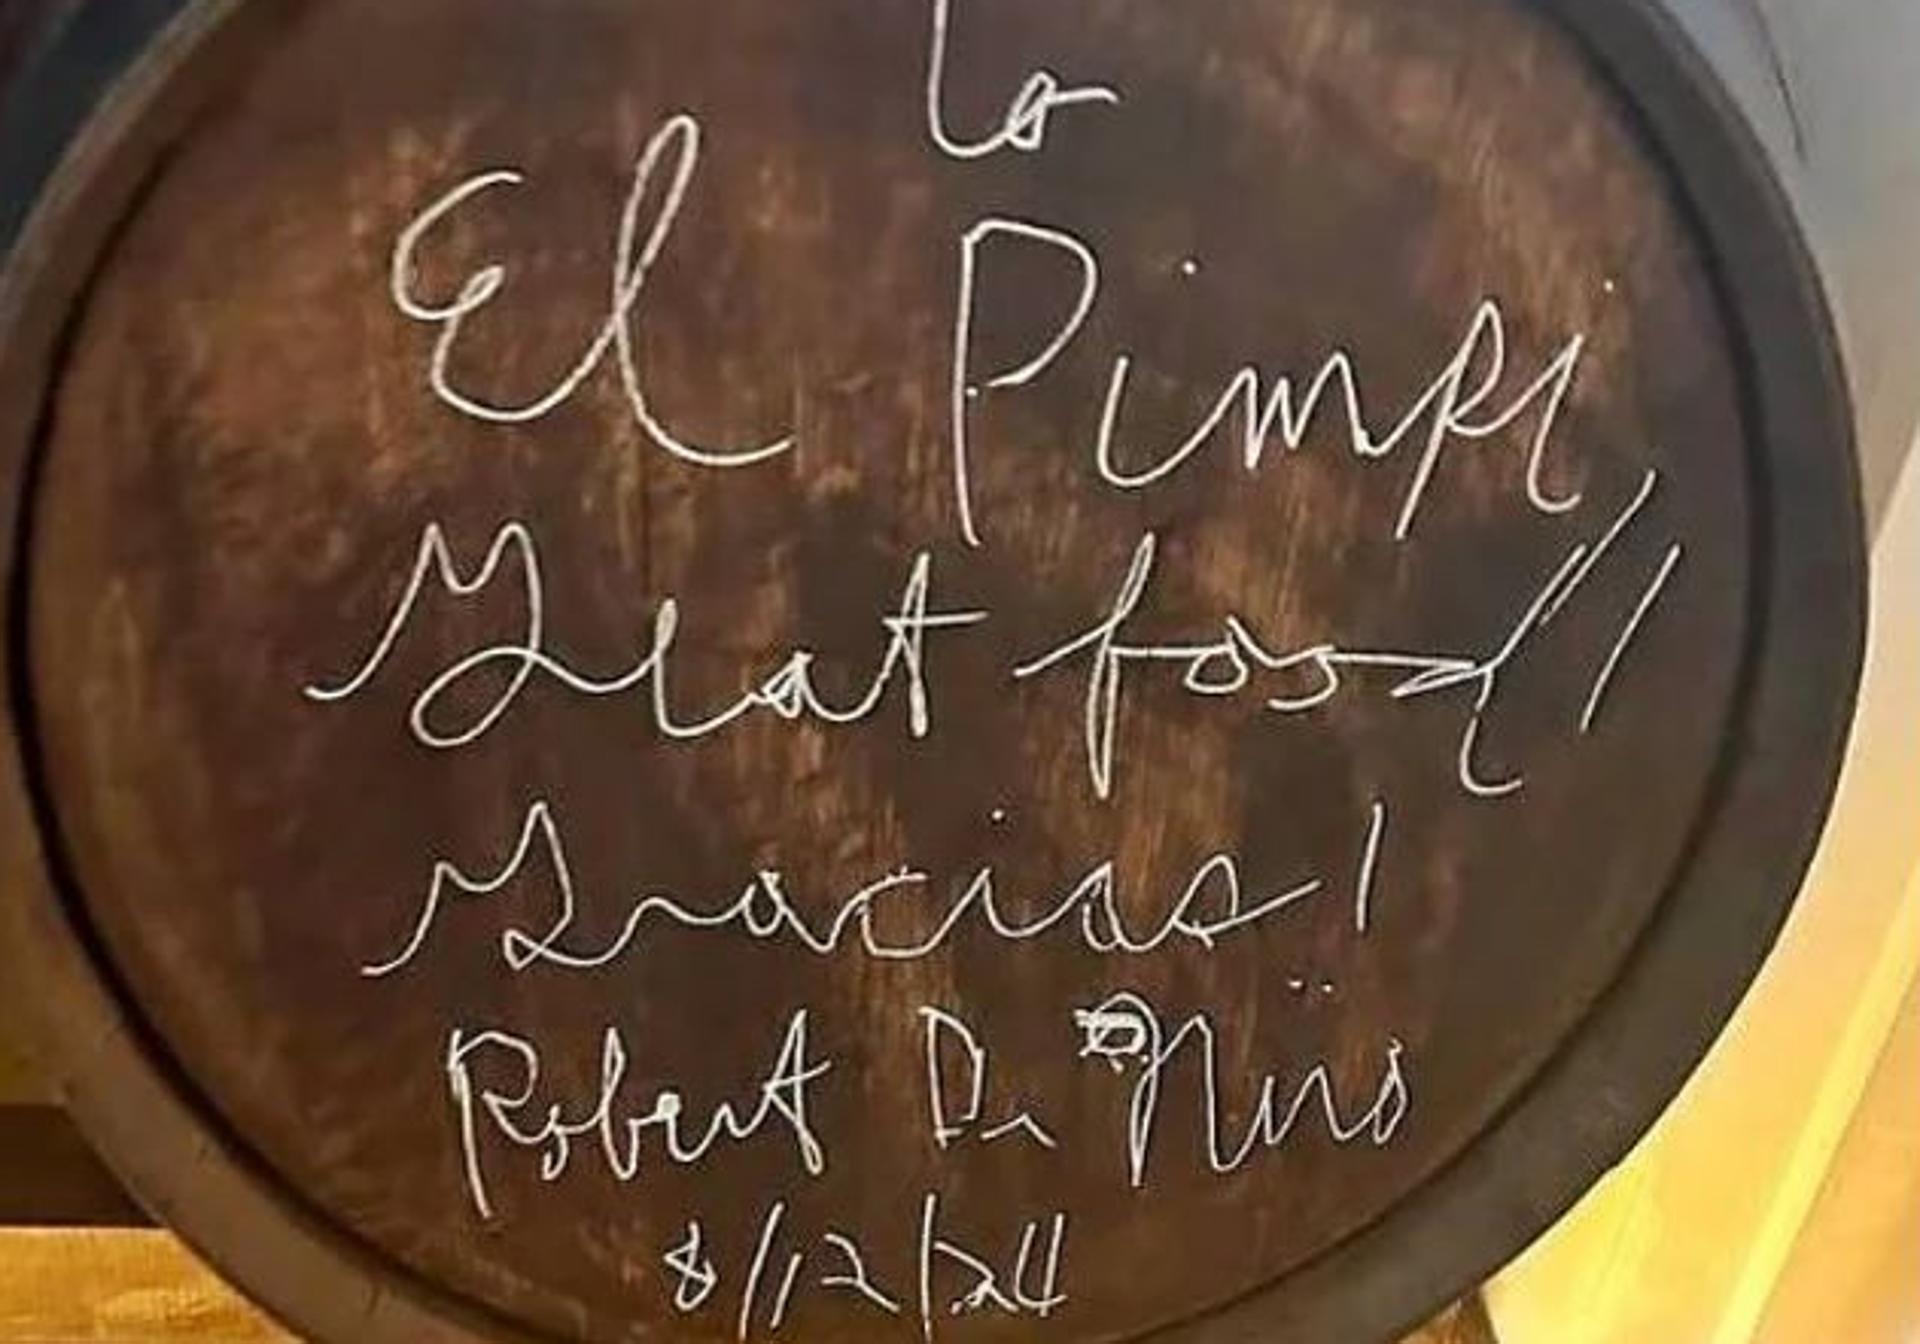 to
El Pimpi,
Great food!!
Gracias!
Robert De Niro
8/12/24